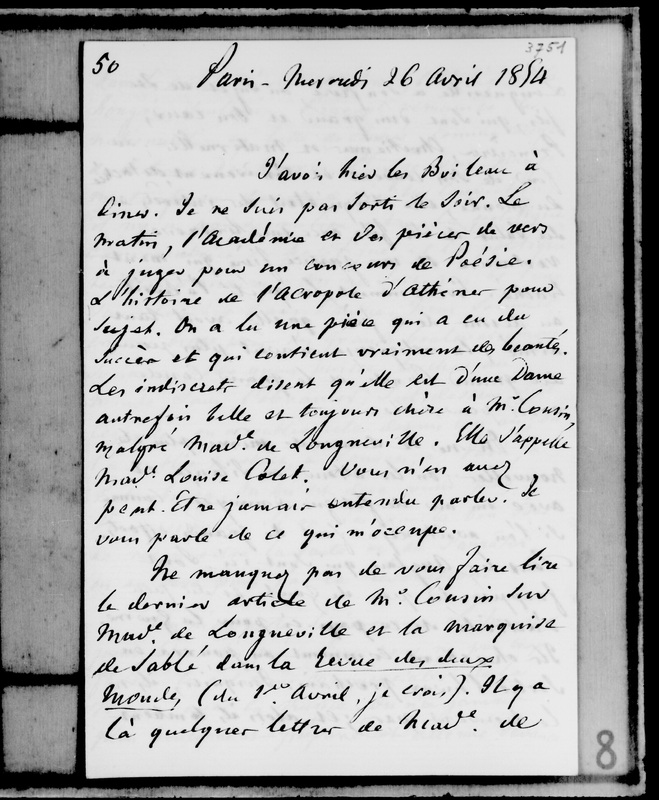 3751
50
Paris - Mercredi 26 Avril 1854
J'avois hier les Boileau à
diner. Je ne suis pas sorti le soir. Le
matin, l'Académie et des pièces de vers
à juger pour un concours de Poésie.
L'histoire de l'Acropole d'Athénes pour
sujet. On a lu une pièce qui a eu du
succès et qui contient vraiment des beautés.
Les indiscrets disent qu'elle est d'une Dame
autrefois belle et toujours chère à Mr. Cousin,
malgré Made. de Longueville. Elle s'appelle
Made. Louise Colet. Vous n'en avez
peut-être jamais entendu parler. Je
vous parle de ce qui m'occupe.
Ne manquez pas de vous faire lire
le dernier article de Mr. Cousin sur
Made. de Longueville et la marquise
de Sablé dans la Revue des deux
Mondes, (du 1er. Avril, je crois). Il y a
là quelques lettres de Made. de
8